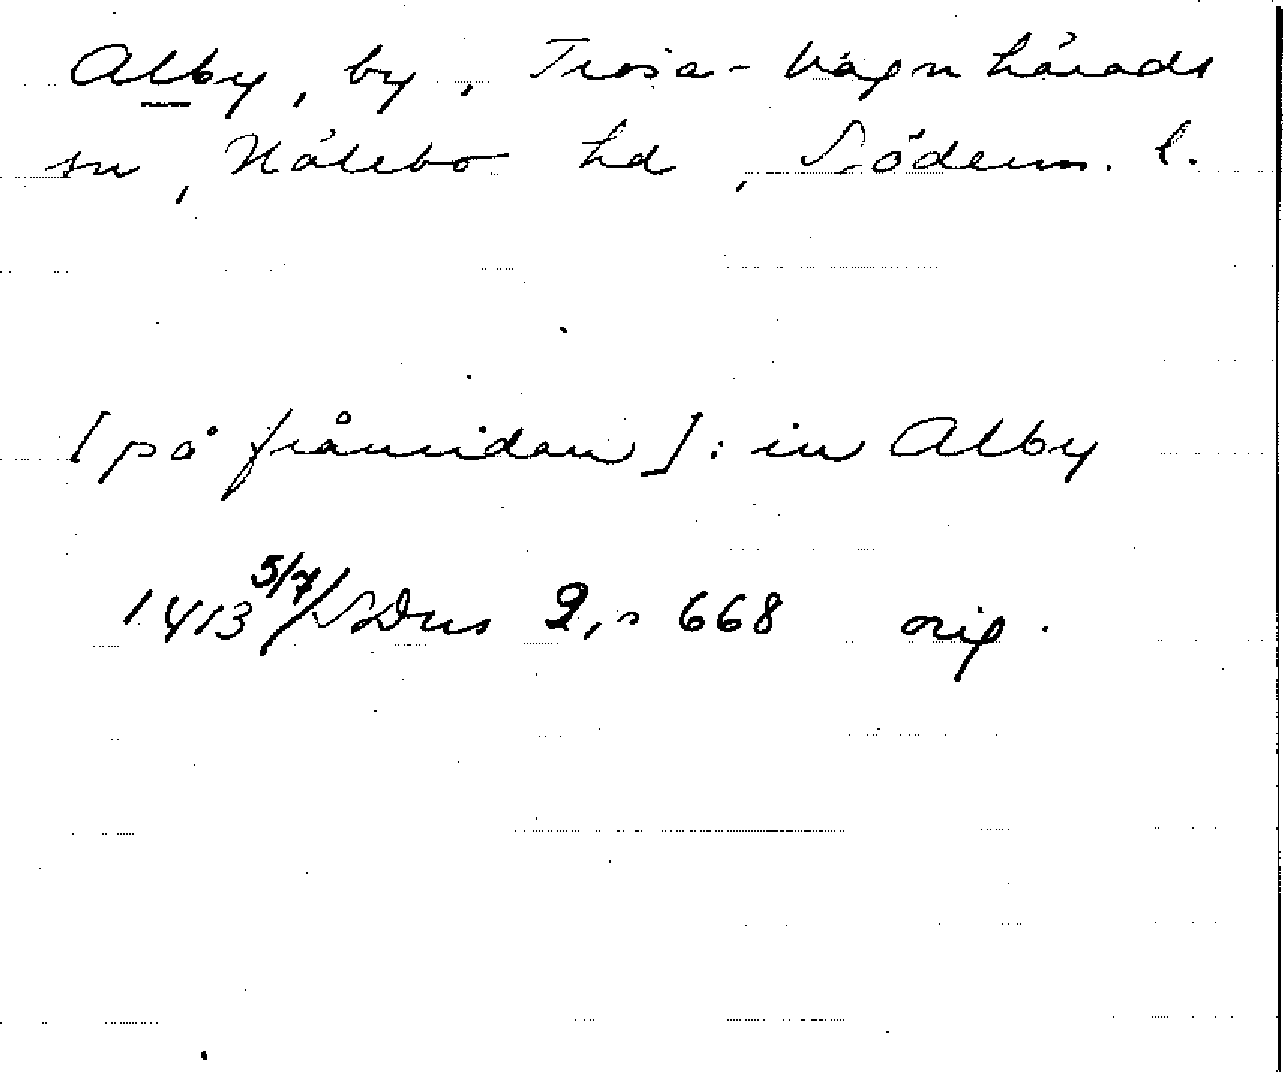 Alby, by, Trosa-Vagnhärads
sn, Hölebo hd, Söderm. l.
[på frånsidan]: in Alby
1413 5/7/SDns 2, s 668 orig.